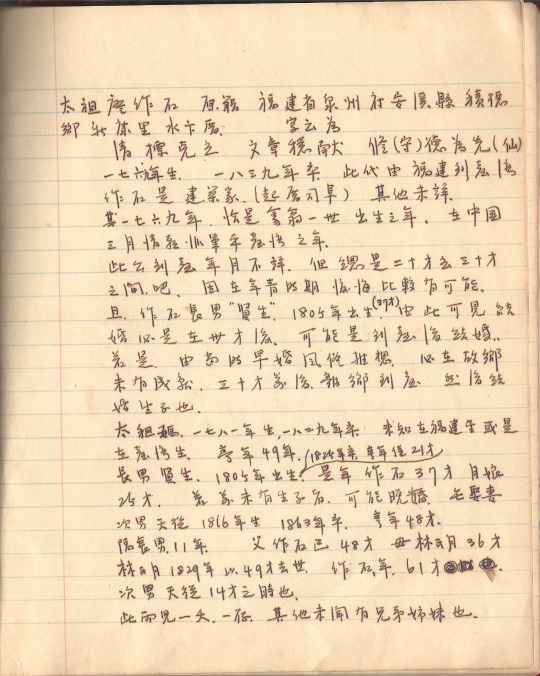 太祖 廖作石 原籍 福建省泉州府安溪縣積德
鄉新康里 水卞厝 字云為
清標克立 文章穗献 修(守)德為先(仙)
一七六九年生. 一八三九年卒 此代由福建到臺湾
作石是建築家.(起厝司阜) 其他未詳.
其一七六九年 恰是拿翁一世出生之年. 在中國
三月情
此公到臺年月不詳. 但總是二十才至三十才
之間吧. 因在年青時期 渡海比較有可能.
且. 作石長男"賢生". 1805年出生(37才)由此可見 結
婚必是在卅才後. 可能是到臺後結婚..
若是. 由當時早婚風俗推想. 必在故鄉
未有成就. 三十才前後離鄉到臺 然後結
婚生子也.
太祖媽. 一七八一年生.一八二九年卒 未知在福建生或是
在臺湾生. 享年49年. 1825年卒. 享年僅21才
長男賢生. 1805年出生. 是年 作石37才 月娘
25才. 若前未有生子女. 可能晚婚 女娶妻
次男天從 1816年生 1863年卒. 享年48才.
隔長男.11年. 父作石已48才 母林月36才
林月1829年以49才去世. 作石年. 61才
次男天從14才之時也.
此两兒一夭. 一存. 其他未聞有兄弟姊妹也.